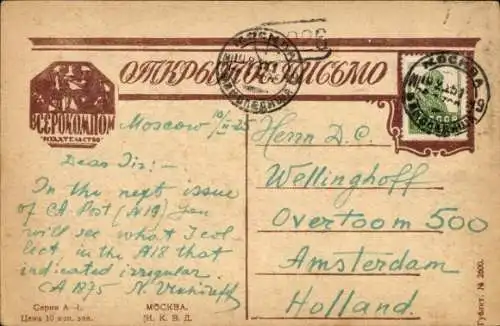 ОТКРЫТОЕ ПИСЬМО
МОСКВА
МОСКВА
ВСЕРОКОМПОМ
ИЗДАТЕЛЬСТВО
Moscow 10/II-25
Dear Sir:-
In the next issue
of CA Post (N19) you
will see what I col
lect in the A18 that
indicated irregular.
CA 1875 N.
Herrn D.C.
Wellinghoff
Overtoom 500
Amsterdam
Holland.
Серия А-1.
Цена 10 коп. зол.
МОСКВА.
Н. К. В. Д.
Гублит. № 2600.